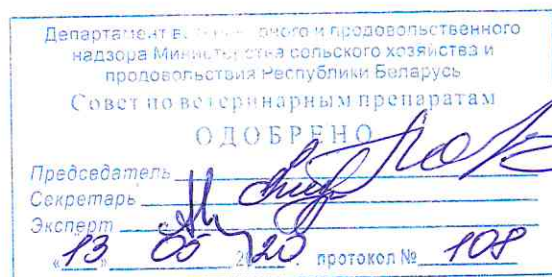 Департамент ветеринарного и продовольственного
надзора Министерства сельского хозяйства и
продовольствия Республики Беларусь
Совет по ветеринарным препаратам
ОДОБРЕНО
Председатель
Секретарь
Эксперт
«13» 05 2020 протокол № 108